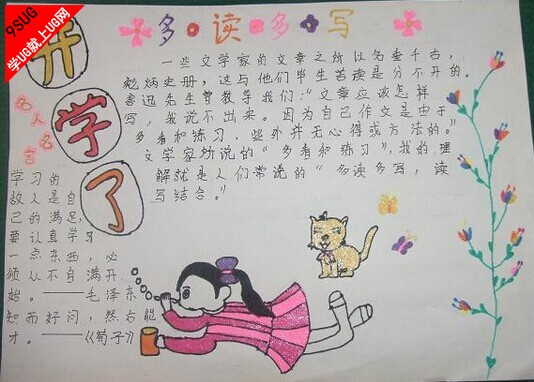 9SUG
学UG就上UG网
开
学
了
多读多写
一些文学家的文章之所以名垂千古,
彪炳史册,这与他们毕生苦读是分不开的。
鲁迅先生曾教导我们:“文章应该怎样
写,我说不出来。因为自己作文是由于
多看和练习,此外并无心得或方法的。”
文学家所说的“多看和练习”,我的理
解就是人们常说的“多读多写,读
写结合。”
名人名言
学习的
敌人是自
己的满足,
要认真学习
一点东西,必
须从不自满开
始。——毛泽东
知而好问,然后能
才。——《荀子》